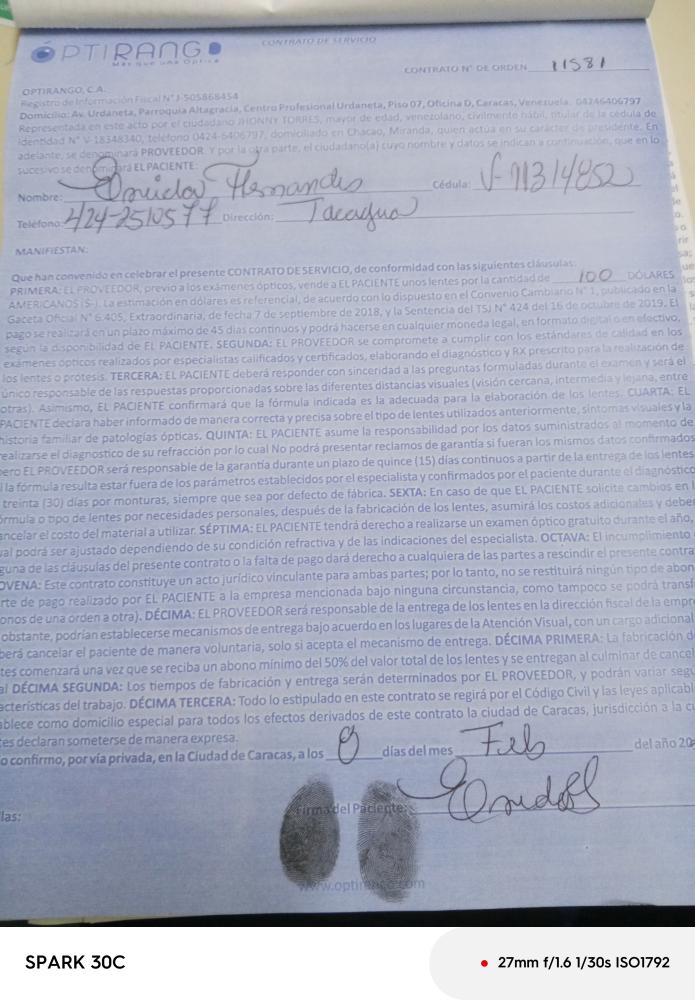 OPTIRANGO
Más que una Óptica
CONTRATO DE SERVICIO
CONTRATO N° DE ORDEN 11581
OPTIRANGO, C.A.
Registro de Información Fiscal N° J-505868454
Domicilio: Av. Urdaneta, Parroquia Altagracia, Centro Profesional Urdaneta, Piso 07, Oficina D, Caracas, Venezuela. 04246406797
Representada en este acto por el ciudadano JHONNY TORRES, mayor de edad, venezolano, civilmente hábil, titular de la cédula de
Identidad N° V-18348340, teléfono 0424-6406797, domiciliado en Chacao, Miranda, quien actúa en su carácter de presidente. En
adelante, se denominará PROVEEDOR. Y por la otra parte, el ciudadano(a) cuyo nombre y datos se indican a continuación, que en lo
sucesivo se denominará EL PACIENTE:
Nombre: Hernandes Cédula: V-11314852
Teléfono: 424-2510577 Dirección: Tacagua
MANIFIESTAN:
Que han convenido en celebrar el presente CONTRATO DE SERVICIO, de conformidad con las siguientes cláusulas:
PRIMERA: EL PROVEEDOR, previo a los exámenes ópticos, vende a EL PACIENTE unos lentes por la cantidad de 100 DÓLARES
AMERICANOS ($-). La estimación en dólares es referencial, de acuerdo con lo dispuesto en el Convenio Cambiario N° 1, publicado en la
Gaceta Oficial N° 6.405, Extraordinaria, de fecha 7 de septiembre de 2018, y la Sentencia del TSJ N° 424 del 16 de octubre de 2019. El
pago se realizará en un plazo máximo de 45 días continuos y podrá hacerse en cualquier moneda legal, en formato digital o en efectivo,
según la disponibilidad de EL PACIENTE. SEGUNDA: EL PROVEEDOR se compromete a cumplir con los estándares de calidad en los
exámenes ópticos realizados por especialistas calificados y certificados, elaborando el diagnóstico y RX prescrito para la realización de
los lentes o prótesis. TERCERA: EL PACIENTE deberá responder con sinceridad a las preguntas formuladas durante el examen y será el
único responsable de las respuestas proporcionadas sobre las diferentes distancias visuales (visión cercana, intermedia y lejana, entre
otras). Asimismo, EL PACIENTE confirmará que la fórmula indicada es la adecuada para la elaboración de los lentes. CUARTA: EL
PACIENTE declara haber informado de manera correcta y precisa sobre el tipo de lentes utilizados anteriormente, síntomas visuales y la
historia familiar de patologías ópticas. QUINTA: EL PACIENTE asume la responsabilidad por los datos suministrados al momento de
realizarse el diagnostico de su refracción por lo cual No podrá presentar reclamos de garantía si fueran los mismos datos confirmados
pero EL PROVEEDOR será responsable de la garantía durante un plazo de quince (15) días continuos a partir de la entrega de los lentes
la fórmula resulta estar fuera de los parámetros establecidos por el especialista y confirmados por el paciente durante el diagnóstico
treinta (30) días por monturas, siempre que sea por defecto de fábrica. SEXTA: En caso de que EL PACIENTE solicite cambios en l
órmula o tipo de lentes por necesidades personales, después de la fabricación de los lentes, asumirá los costos adicionales y deber
ancelar el costo del material a utilizar. SÉPTIMA: EL PACIENTE tendrá derecho a realizarse un examen óptico gratuito durante el año,
ual podrá ser ajustado dependiendo de su condición refractiva y de las indicaciones del especialista. OCTAVA: El incumplimiento
guna de las cláusulas del presente contrato o la falta de pago dará derecho a cualquiera de las partes a rescindir el presente contra
OVENA: Este contrato constituye un acto jurídico vinculante para ambas partes; por lo tanto, no se restituirá ningún tipo de abon
rte de pago realizado por EL PACIENTE a la empresa mencionada bajo ninguna circunstancia, como tampoco se podrá transf
onos de una orden a otra). DÉCIMA: EL PROVEEDOR será responsable de la entrega de los lentes en la dirección fiscal de la empr
obstante, podrían establecerse mecanismos de entrega bajo acuerdo en los lugares de la Atención Visual, con un cargo adicional
berá cancelar el paciente de manera voluntaria, solo si acepta el mecanismo de entrega. DÉCIMA PRIMERA: La fabricación d
tes comenzará una vez que se reciba un abono mínimo del 50% del valor total de los lentes y se entregan al culminar de cancel
al DÉCIMA SEGUNDA: Los tiempos de fabricación y entrega serán determinados por EL PROVEEDOR, y podrán variar segú
acterísticas del trabajo. DÉCIMA TERCERA: Todo lo estipulado en este contrato se regirá por el Código Civil y las leyes aplicabl
ablece como domicilio especial para todos los efectos derivados de este contrato la ciudad de Caracas, jurisdicción a la cu
tes declaran someterse de manera expresa.
o confirmo, por vía privada, en la Ciudad de Caracas, a los 8 días del mes Feb del año 20
Firma del Paciente:
las:
www.optirango.com
SPARK 30C
27mm f/1.6 1/30s ISO1792